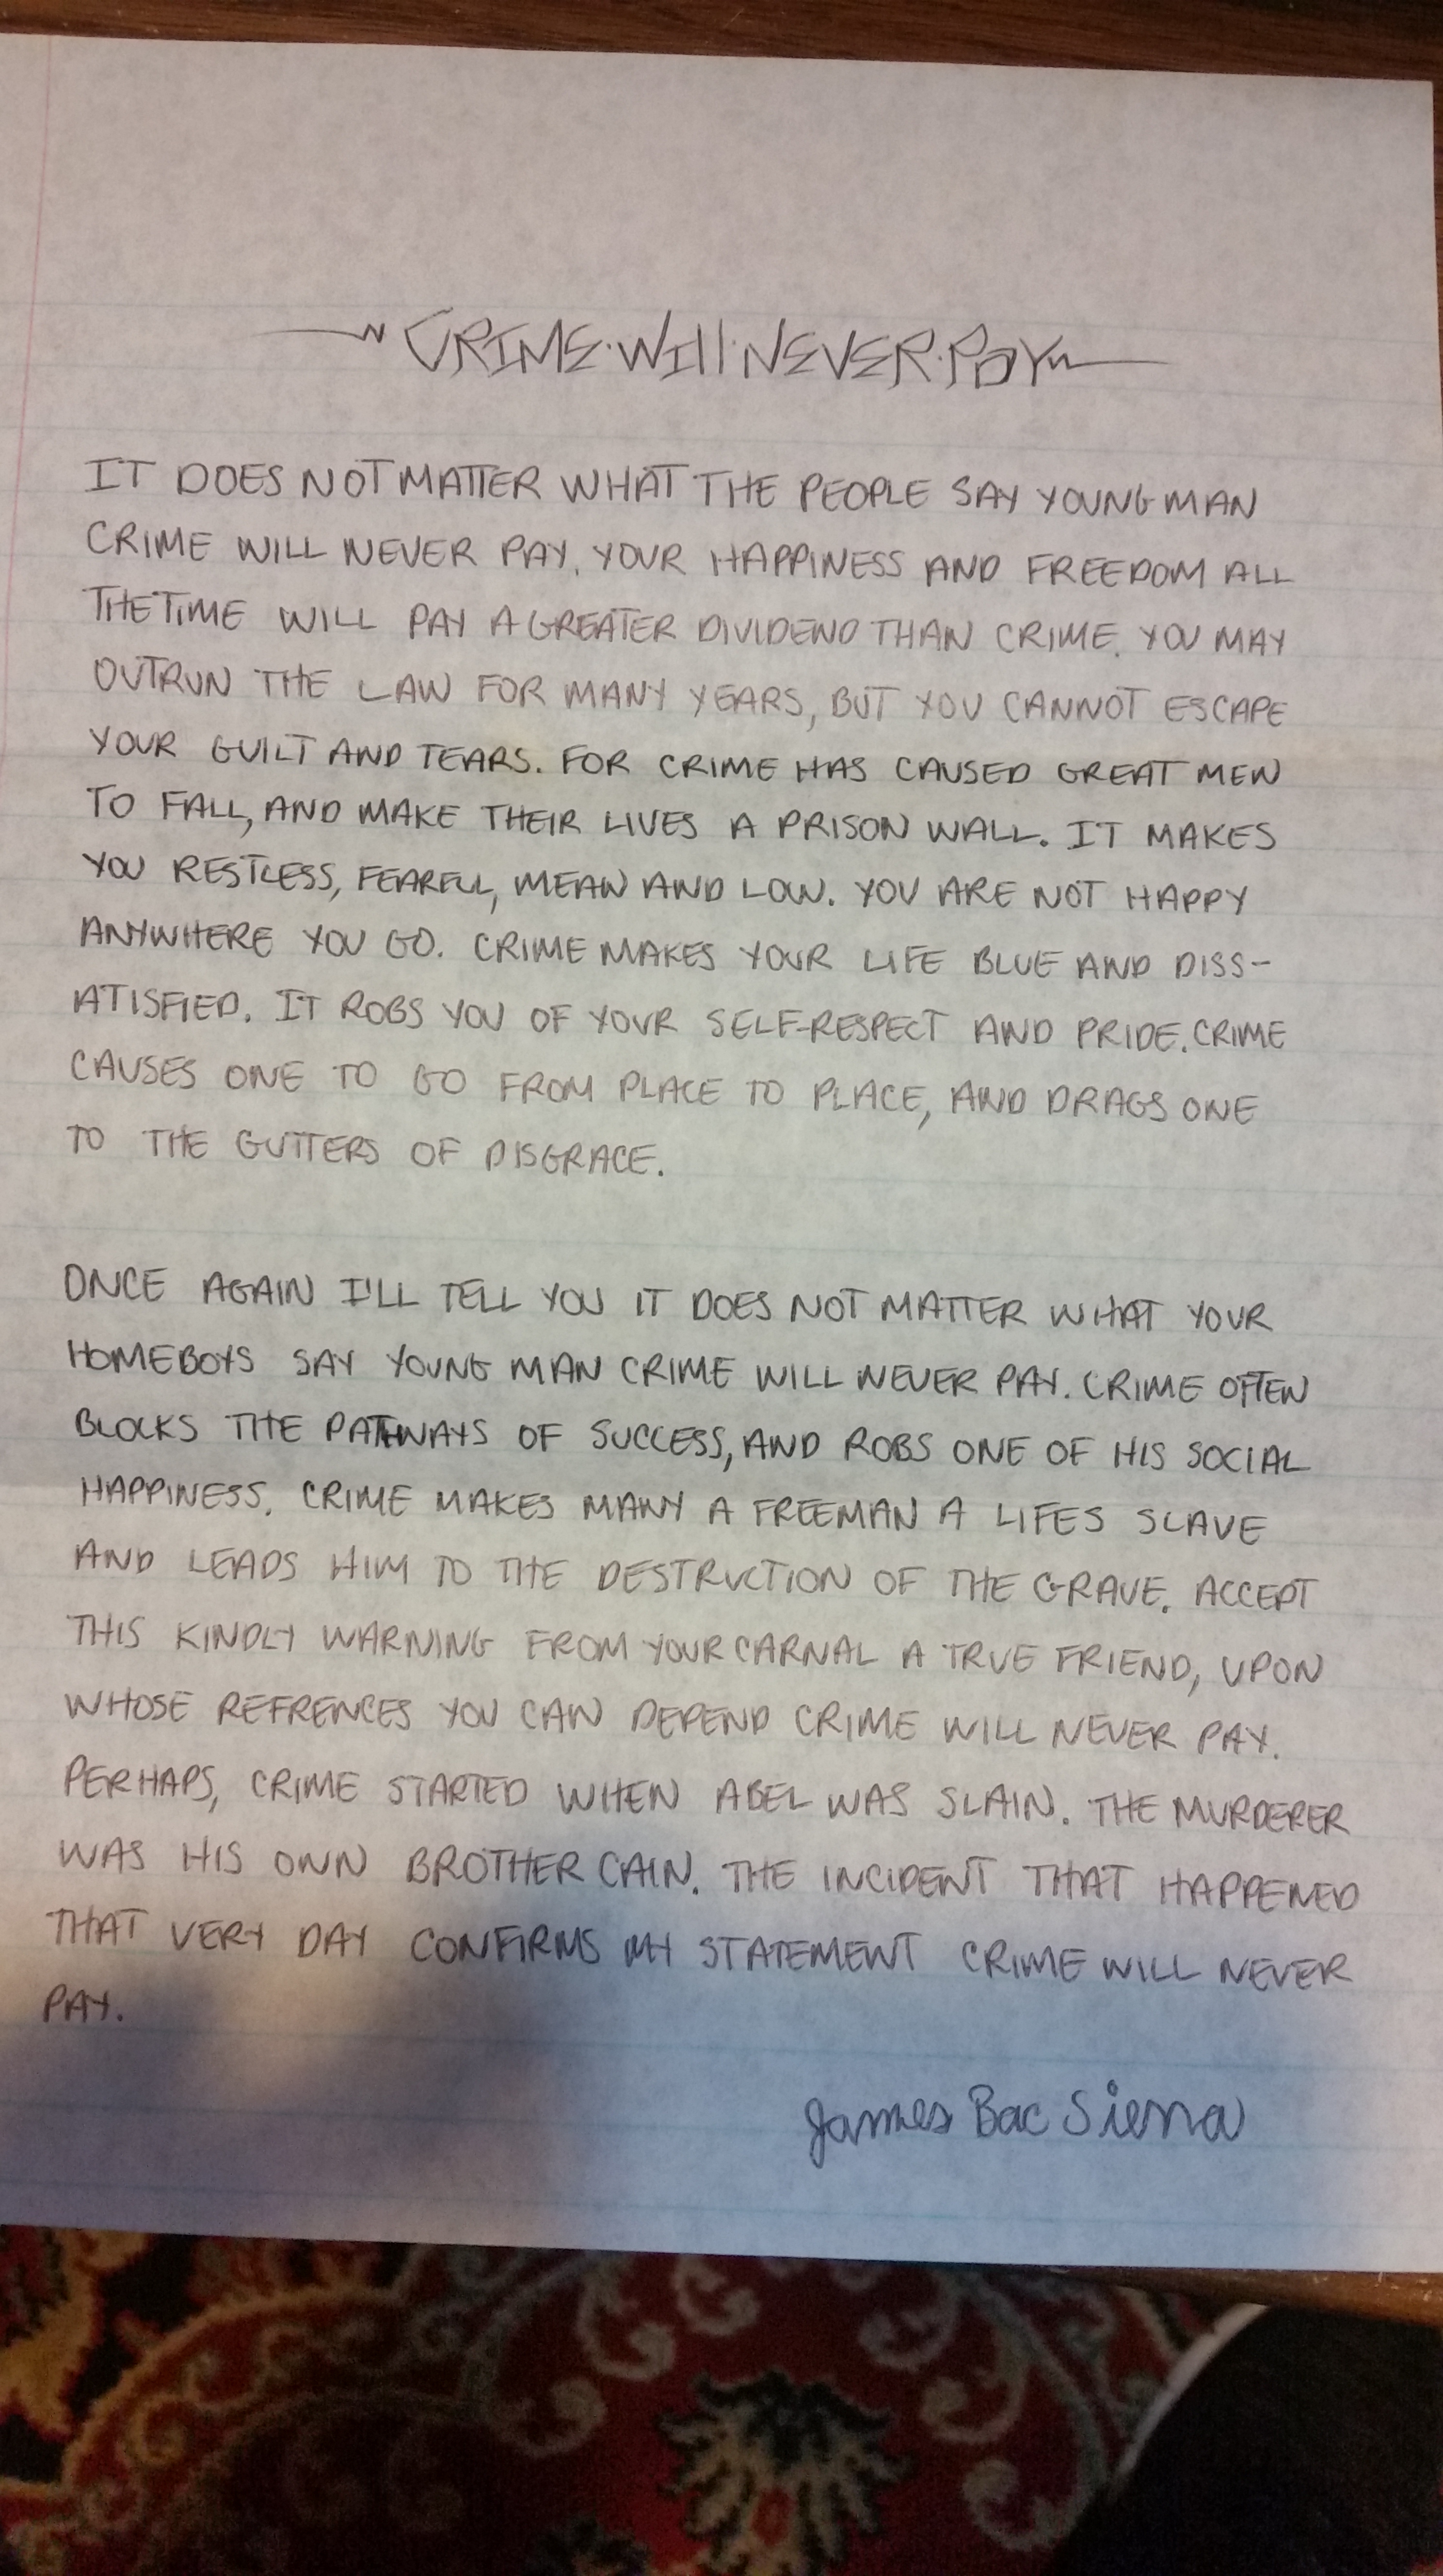 CRIME·WILL·NEVER·PAY
IT DOES NOT MATTER WHAT THE PEOPLE SAY YOUNG MAN
CRIME WILL NEVER PAY. YOUR HAPPINESS AND FREEDOM ALL
THE TIME WILL PAY A GREATER DIVIDEND THAN CRIME. YOU MAY
OUTRUN THE LAW FOR MANY YEARS, BUT YOU CANNOT ESCAPE
YOUR GUILT AND TEARS. FOR CRIME HAS CAUSED GREAT MEN
TO FALL, AND MAKE THEIR LIVES A PRISON WALL. IT MAKES
YOU RESTLESS, FEARFUL, MEAN AND LOW. YOU ARE NOT HAPPY
ANYWHERE YOU GO. CRIME MAKES YOUR LIFE BLUE AND DISS-
ATISFIED. IT ROBS YOU OF YOUR SELF-RESPECT AND PRIDE. CRIME
CAUSES ONE TO GO FROM PLACE TO PLACE, AND DRAGS ONE
TO THE GUTTERS OF DISGRACE.
ONCE AGAIN I'LL TELL YOU IT DOES NOT MATTER WHAT YOUR
HOMEBOYS SAY YOUNG MAN CRIME WILL NEVER PAY. CRIME OFTEN
BLOCKS THE PATHWAYS OF SUCCESS, AND ROBS ONE OF HIS SOCIAL
HAPPINESS. CRIME MAKES MANY A FREEMAN A LIFES SLAVE
AND LEADS HIM TO THE DESTRUCTION OF THE GRAVE. ACCEPT
THIS KINDLY WARNING FROM YOUR CARNAL A TRUE FRIEND, UPON
WHOSE REFRENCES YOU CAN DEPEND CRIME WILL NEVER PAY.
PERHAPS, CRIME STARTED WHEN ABEL WAS SLAIN. THE MURDERER
WAS HIS OWN BROTHER CAIN. THE INCIDENT THAT HAPPENED
THAT VERY DAY CONFIRMS MY STATEMENT CRIME WILL NEVER
PAY.
James Bac Sierra